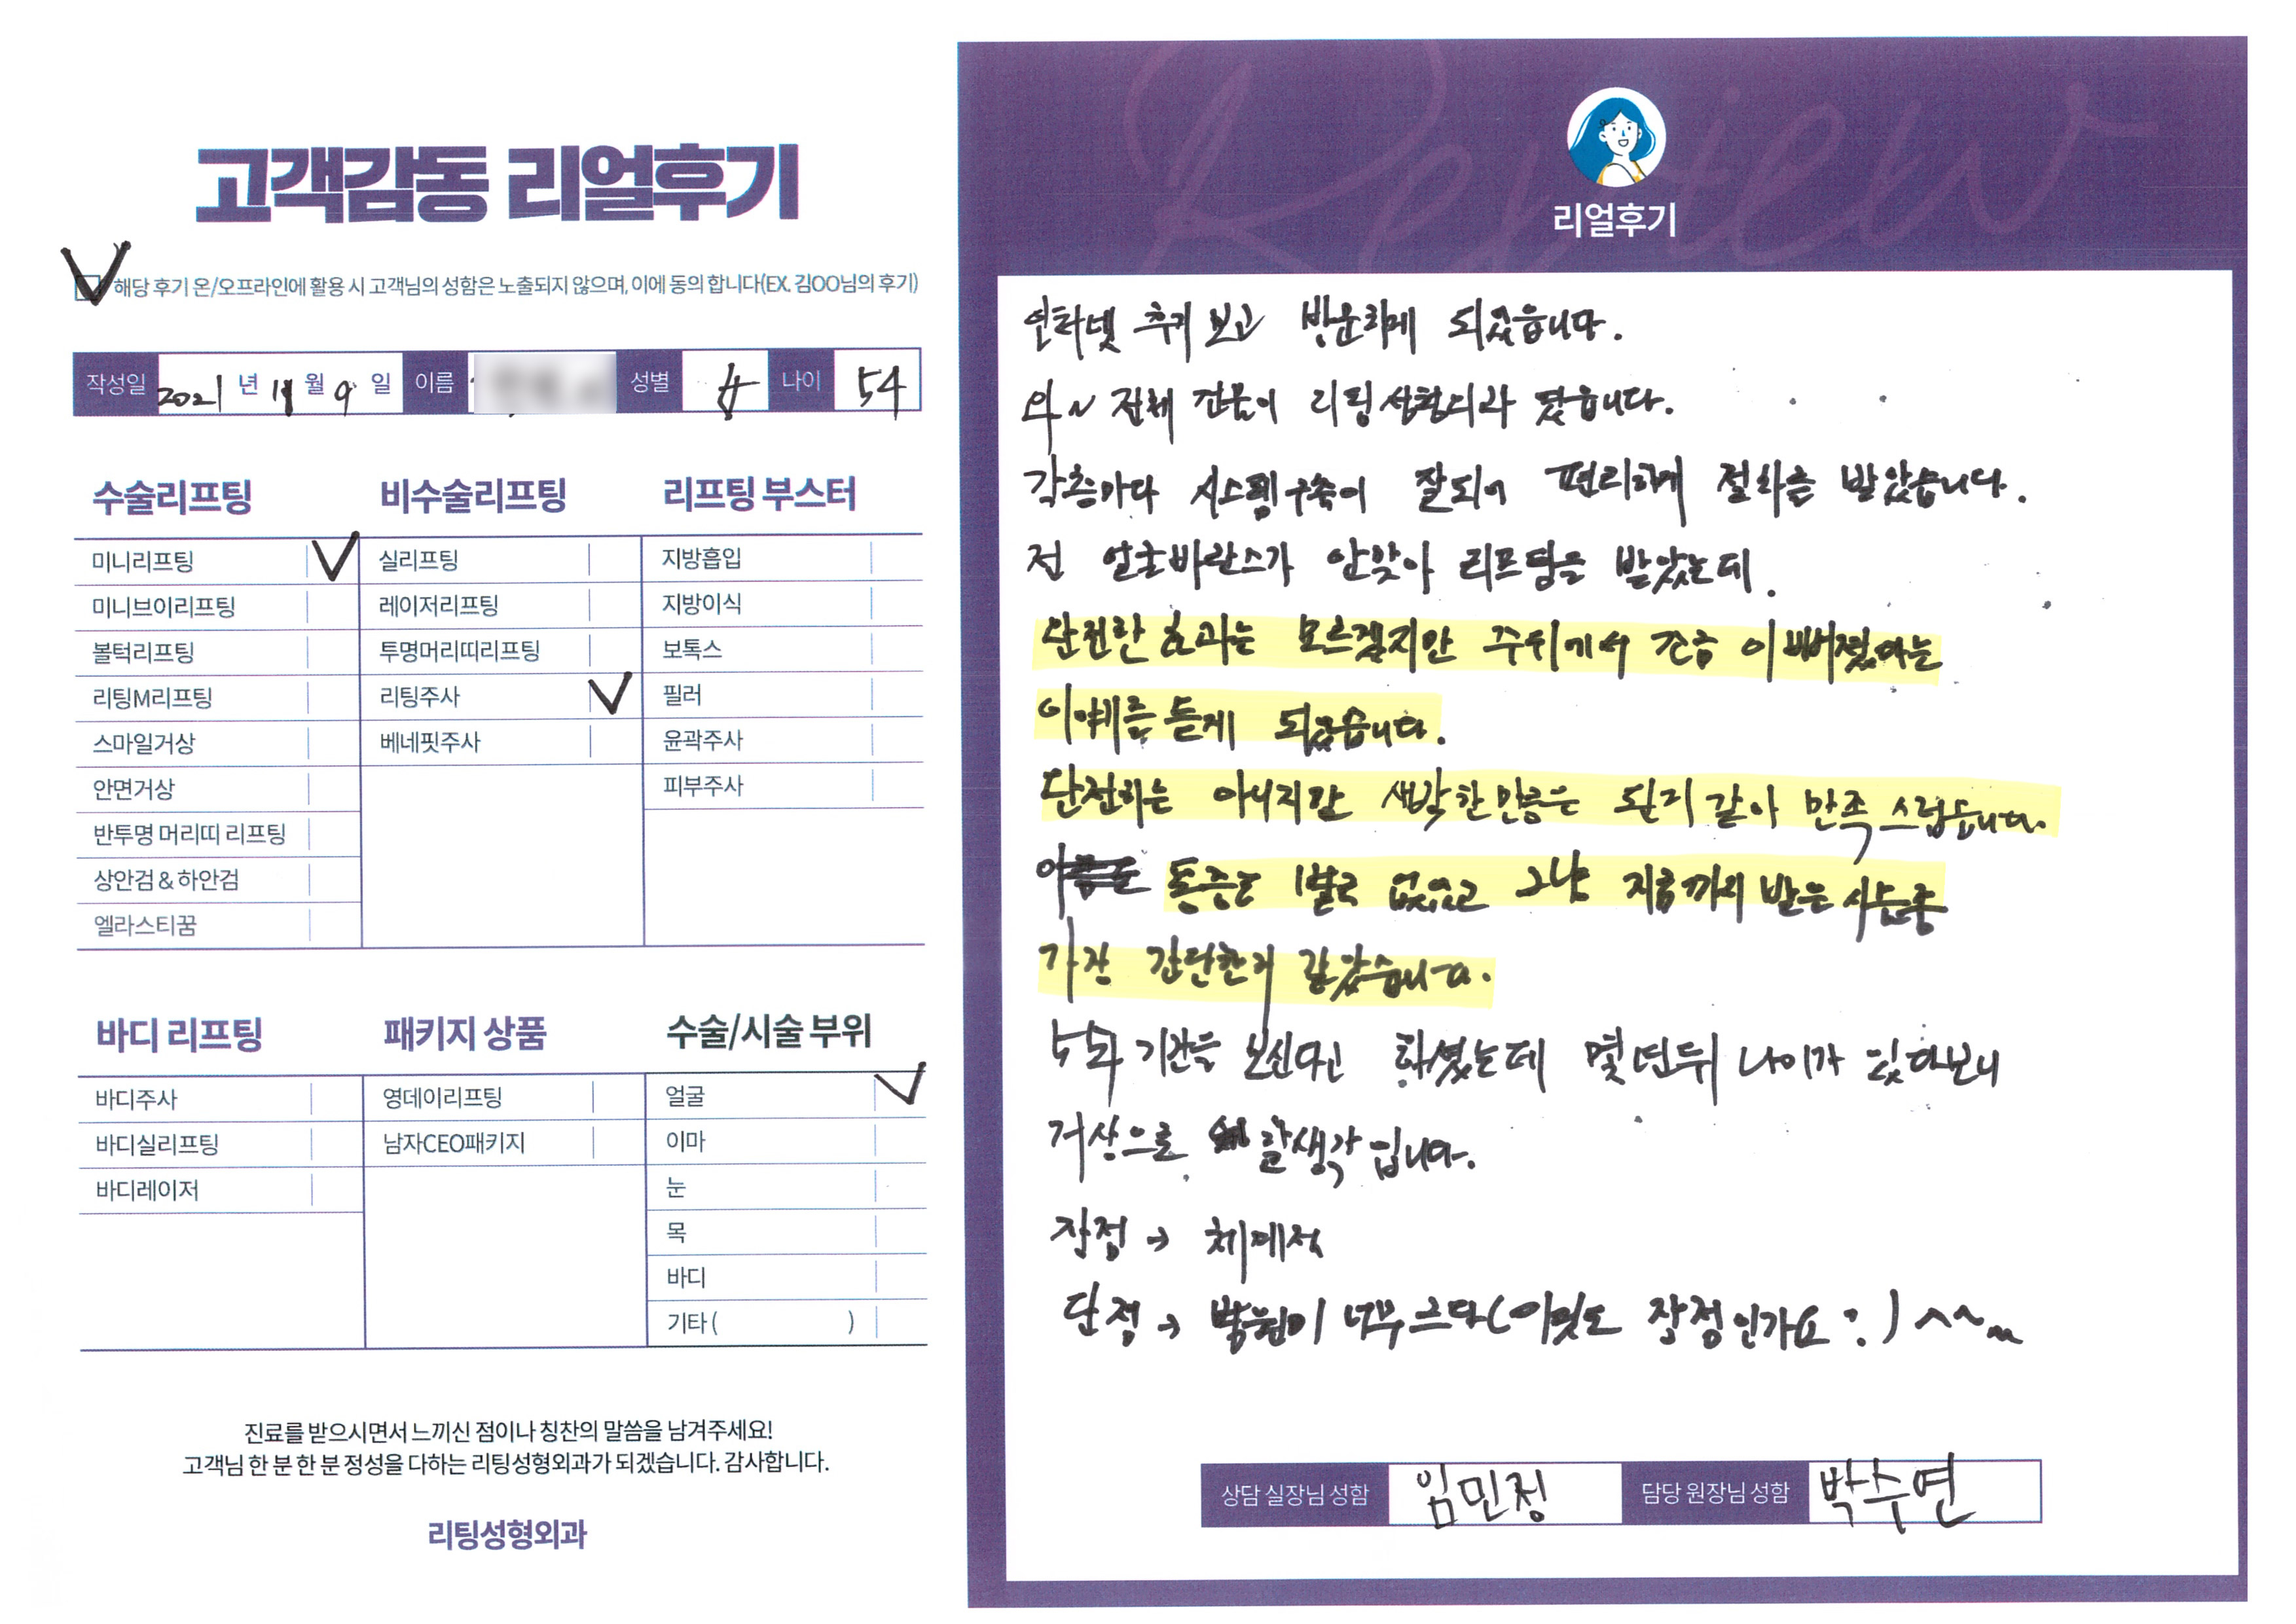 고객감동 리얼후기
해당 후기 온/오프라인에 활용 시 고객님의 성함은 노출되지 않으며, 이에 동의 합니다(EX. 김OO님의 후기)
작성일 2021 년 월 9 일 이름 성별 나이 54
수술리프팅
미니리프팅
미니브이리프팅
볼턱리프팅
리팅M리프팅
스마일거상
안면거상
반투명 머리띠 리프팅
상안검 & 하안검
엘라스티꿈
비수술리프팅
실리프팅
레이저리프팅
투명머리띠리프팅
리팅주사
베네핏주사
리프팅 부스터
지방흡입
지방이식
보톡스
필러
윤곽주사
피부주사
바디 리프팅
바디주사
바디실리프팅
바디레이저
패키지 상품
영데이리프팅
남자CEO패키지
수술/시술 부위
얼굴
이마
눈
목
바디
기타 ( )
진료를 받으시면서 느끼신 점이나 칭찬의 말씀을 남겨주세요!
고객님 한 분 한 분 정성을 다하는 리팅성형외과가 되겠습니다. 감사합니다.
리팅성형외과
Review
리얼후기
인터넷 후기 보고 방문하게 되었습니다.
와~ 전체 건물이 리팅성형외과 였습니다.
각층마다 시스템구축이 잘되어 편리하게 절차를 받았습니다.
전 얼굴바란스가 안맞아 리프팅을 받았는데.
완전한 효과는 모르겠지만 주위에서 조금 이뻐졌다는
이야기를 듣게 되었습니다.
완전히는 아니지만 생각한 만큼은 된거 같아 만족스럽습니다.
통증은 별로 없었고 그냥 지금까지 받은 시술중
가장 간단한거 같았습니다.
기간을 보신다고 하셨는데 몇년뒤 나이가 있다보니
거상으로 할생각입니다.
장점 → 체계적
단점 → 병원이 너무 크다(이것도 장점인가요?) ^^~
상담 실장님 성함 임민정 담당 원장님 성함 박수연